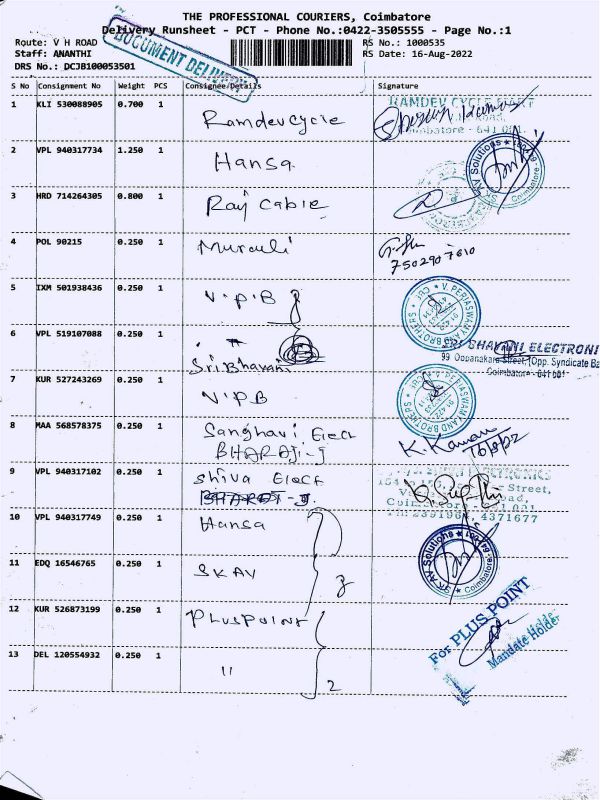 THE PROFESSIONAL COURIERS, Coimbatore
Delivery Runsheet - PCT - Phone No.:0422-3505555 - Page No.:1
Route: V H ROAD RS No.: 1000535
Staff: ANANTHI RS Date: 16-Aug-2022
DRS No.: DCJB100053501
DOCUMENT DELIVERY
S No Consignment No Weight PCS Consignee/Details Signature
1 KLI 530088905 0.700 1 Ramdev cycle
RAMDEV CYCLE MART
Coimbatore - 641 001.
2 VPL 940317734 1.250 1 Hansa
SK AV Solutions * Coimbatore
3 HRD 714264305 0.800 1 Raj Cable
4 POL 90215 0.250 1 Murauli
7502907610
5 IXM 501938436 0.250 1 V.P.B
V PERIASWAMY AND BROTHERS * CBE
6 VPL 519107088 0.250 1 "
Sri Bhavani
SRI BHAVANI ELECTRONI
99 Oppanakara Street, (Opp. Syndicate Ba
Coimbatore - 641 001
7 KUR 527243269 0.250 1 V.P.B
V PERIASWAMY AND BROTHERS * CBE
8 MAA 568578375 0.250 1 Sanghavi Elect
BHARATI-J
K. Kannan
16/8/22
9 VPL 940317102 0.250 1 Shiva Elect
ELECTRONICS
Street,
Road,
Coimbatore - 641 001
4371677
10 VPL 940317749 0.250 1 Hansa
11 EDQ 16546765 0.250 1 SKAV
3
SK AV Solutions * Coimbatore - 641 001
12 KUR 526873199 0.250 1 PLUSPOINT
For PLUS POINT
Mandate Holder
13 DEL 120554932 0.250 1 "
2